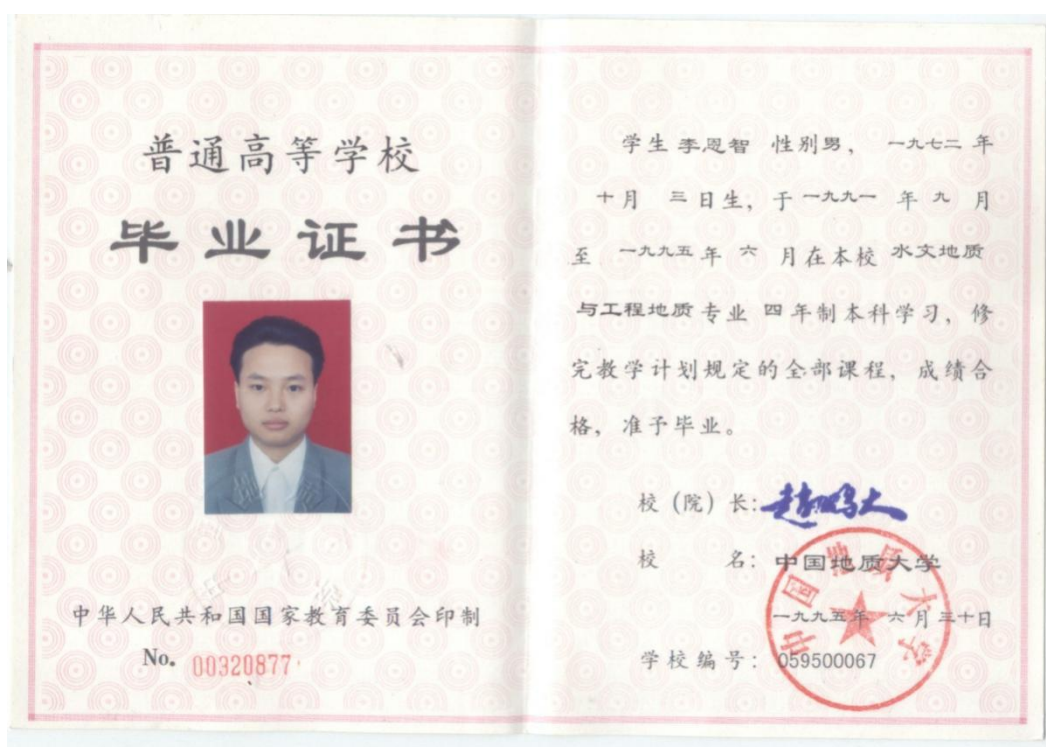 普通高等学校
毕业证书
中华人民共和国国家教育委员会印制
No. 00320877
学生 李恩智 性别男， 一九七二 年
十月 三日生，于一九九一 年 九 月
至 一九九五年 六 月在本校 水文地质
与工程地质专业 四 年制本科学习，修
完教学计划规定的全部课程，成绩合
格，准予毕业。
校（院）长：赵鹏大
校 名：中国地质大学
一九九五年 六月三十日
学校编号：059500067
中国地质大学